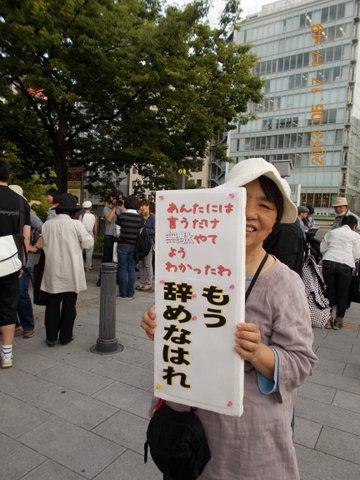 あんたには
言うだけ
無駄やて
よう
わかったわ
もう
辞めなはれ